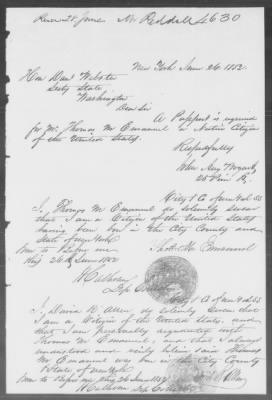 Recd 28 June Mr Reddall 4630
New York June 26. 1852.
Hon Danl Webster
Secty State,
Washington
Dear Sir
A Passport is required
for Mr. Thomas M Emanuel a Native Citizen
of the United States.
Respectfully
25 Pine St.
City & Co of New York SS
I, Thomas M Emanuel do solemnly swear
that I am a Citizen of the United States
having been born in the City County and
State of New York
Sworn to before me
this 26th June 1852
Thos. M. Emanuel
City & Co of New York SS
I, David R Allen, do solemnly swear that
I am a Citizen of the United States, and
that I am personally acquainted with
Thomas M Emanuel, and that I always
understood and verily believe said Thomas
M Emanuel was born in the City County
& State of New York
Sworn to before me this 26 June 1852